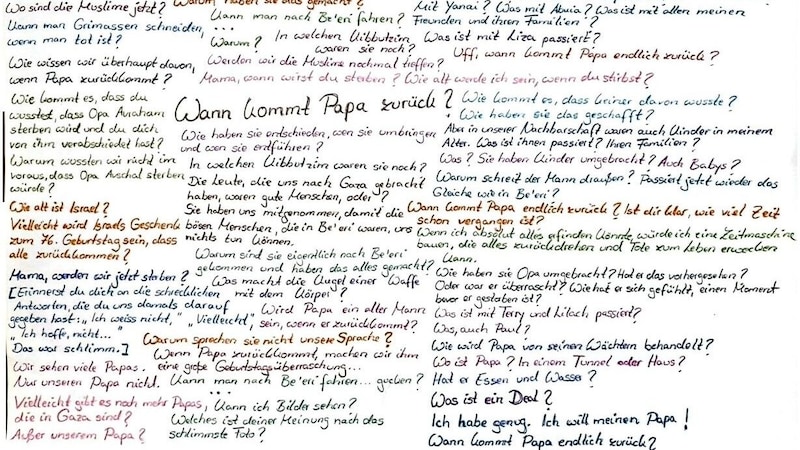 Wo sind die Muslime jetzt? Warum haben sie das gemacht?
Kann man Grimassen schneiden,
wenn man tot ist?
Wie wissen wir überhaupt davon,
wenn Papa zurückkommt?
Wie kommt es, dass du
wusstest, dass Opa Avraham
sterben wird und du dich
von ihm verabschiedet hast?
Warum wussten wir nicht im
voraus, dass Opa Avschal sterben
würde?
Wie alt ist Israel?
Vielleicht wird Israels Geschenk
zum 76. Geburtstag sein, dass
alle zurückkommen?
Mama, werden wir jetzt sterben?
[Erinnerst du dich an die schrecklichen
Antworten, die du uns damals darauf
gegeben hast: „Ich weiss nicht," „Vielleicht",
„Ich hoffe, nicht..."
Das war schlimm.]
Wir sehen viele Papas.
Nur unseren Papa nicht.
Vielleicht gibt es noch mehr Papas,
die in Gaza sind?
Außer unserem Papa?
Kann man nach Be'eri fahren?
...
Warum? In welchen Kibbutzim
waren sie noch?
Werden wir die Muslime nochmal treffen?
Mama, wann wirst du sterben? Wie alt werde ich sein, wenn du stirbst?
Wann kommt Papa zurück?
Wie haben sie entschieden, wen sie umbringen
und wen sie entführen?
In welchen Kibbutzim waren sie noch?
Die Leute, die uns nach Gaza gebracht
haben, waren gute Menschen, oder?
Sie haben uns mitgenommen, damit die
bösen Menschen, die in Be'eri waren, uns
nichts tun können.
Warum sind sie eigentlich nach Be'eri
gekommen und haben das alles gemacht?
Was macht die Kugel einer Waffe
mit dem Körper?
Wird Papa ein alter Mann
sein, wenn er zurückkommt?
Warum sprechen sie nicht unsere Sprache?
Wenn Papa zurückkommt, machen wir ihm
eine große Geburtstagsüberraschung...
Kann man nach Be'eri fahren... gucken?
...
Kann ich Bilder sehen?
Welches ist deiner Meinung nach das
schlimmste Foto?
Mit Yanai? Was mit Abuia? Was ist mit allen meinen
Freunden und ihren Familien?
Was ist mit Liza passiert?
Uff, wann kommt Papa endlich zurück?
Wie kommt es, dass keiner davon wusste?
Wie haben sie das geschafft?
Aber in unserer Nachbarschaft waren auch Kinder in meinem
Alter. Was ist ihnen passiert? Ihren Familien?
Was? Sie haben Kinder umgebracht? Auch Babys?
Warum schreit der Mann draußen? Passiert jetzt wieder das
Gleiche wie in Be'eri?
Wann kommt Papa endlich zurück? Ist dir klar, wie viel Zeit
schon vergangen ist?
Wenn ich absolut alles erfinden könnte, würde ich eine Zeitmaschine
bauen, die alles zurückdrehen und Tote zum Leben erwecken
kann.
Wie haben sie Opa umgebracht? Hat er das vorhergesehen?
Oder war er überrascht? Wie hat er sich gefühlt, einen Moment
bevor er gestorben ist?
Was ist mit Terry und Lilach, passiert?
Was, auch Paul?
Wie wird Papa von seinen Wächtern behandelt?
Wo ist Papa? In einem Tunnel oder Haus?
Hat er Essen und Wasser?
Was ist ein Deal?
Ich habe genug. Ich will meinen Papa!
Wann kommt Papa endlich zurück?